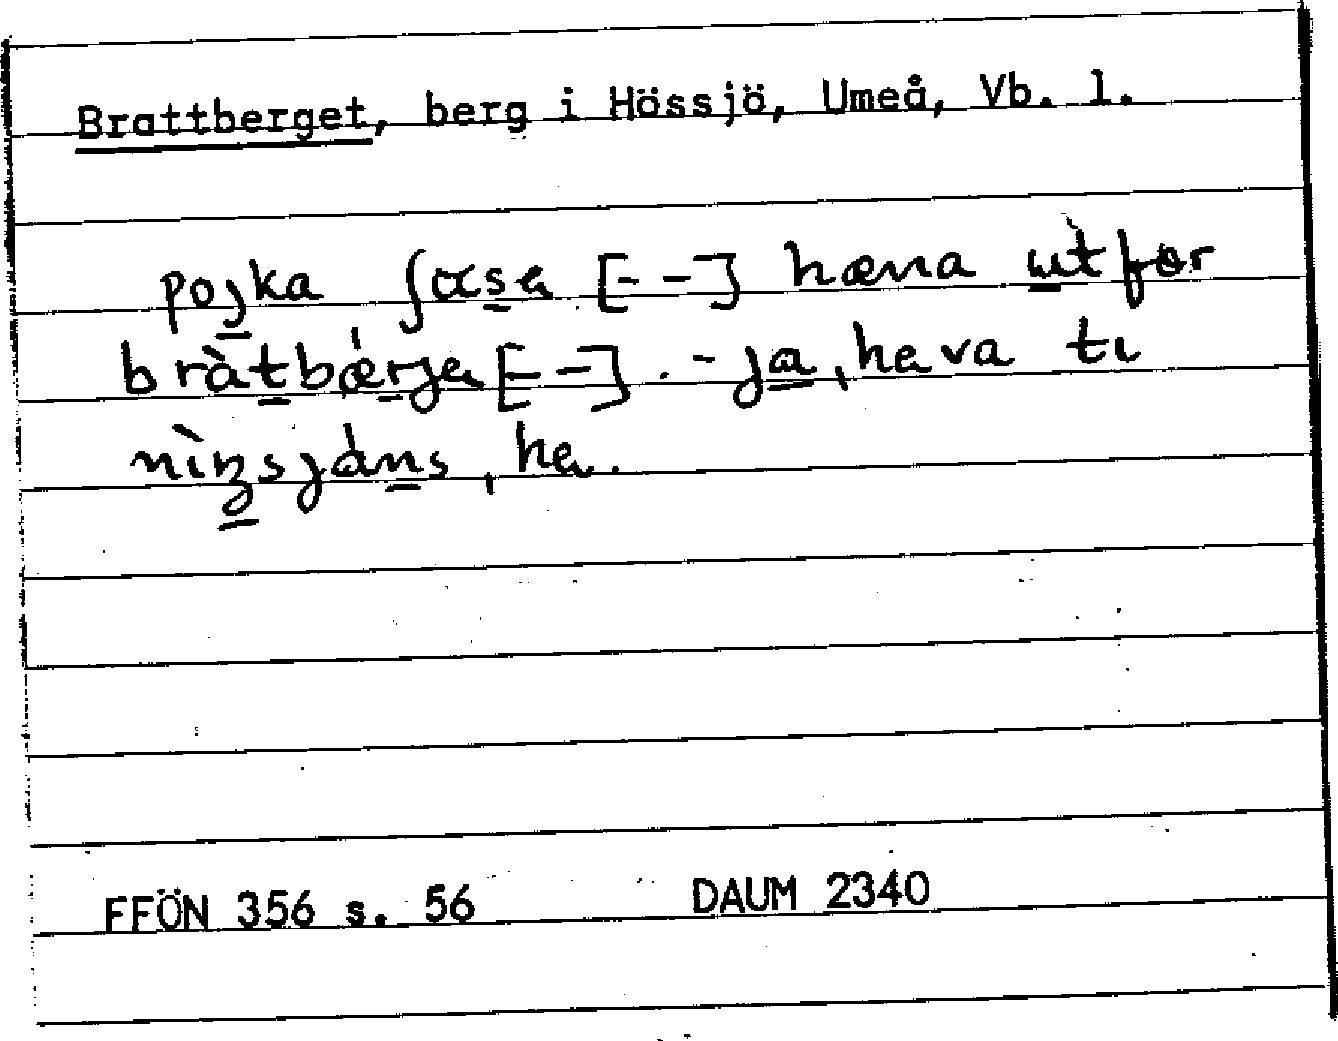 Brattberget, berg i Hössjö, Umeå, Vb. l.
pojka ʃɑsa [- -] hæna ùtfɵr
bràtbǽrjɐ [- -]. - ja, hɐ va tɩ
nìŋsjáns, hɐ.
FFÖN 356 s. 56 DAUM 2340